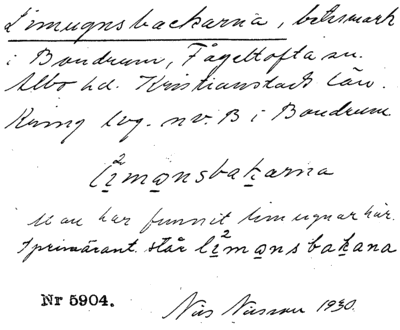 Limugnsbackarna, betesmark
i Bondrum, Fågeltofta sn.
Albo hd. Kristianstads län.
Kring lvg. nv. B i Bondrum
li²mo̲nsbak̲arna
Man har funnit limugnar här.
I primärant. står li²mo̲nsbak̲ana
Nr 5904.
Nils Nilsson 1930.